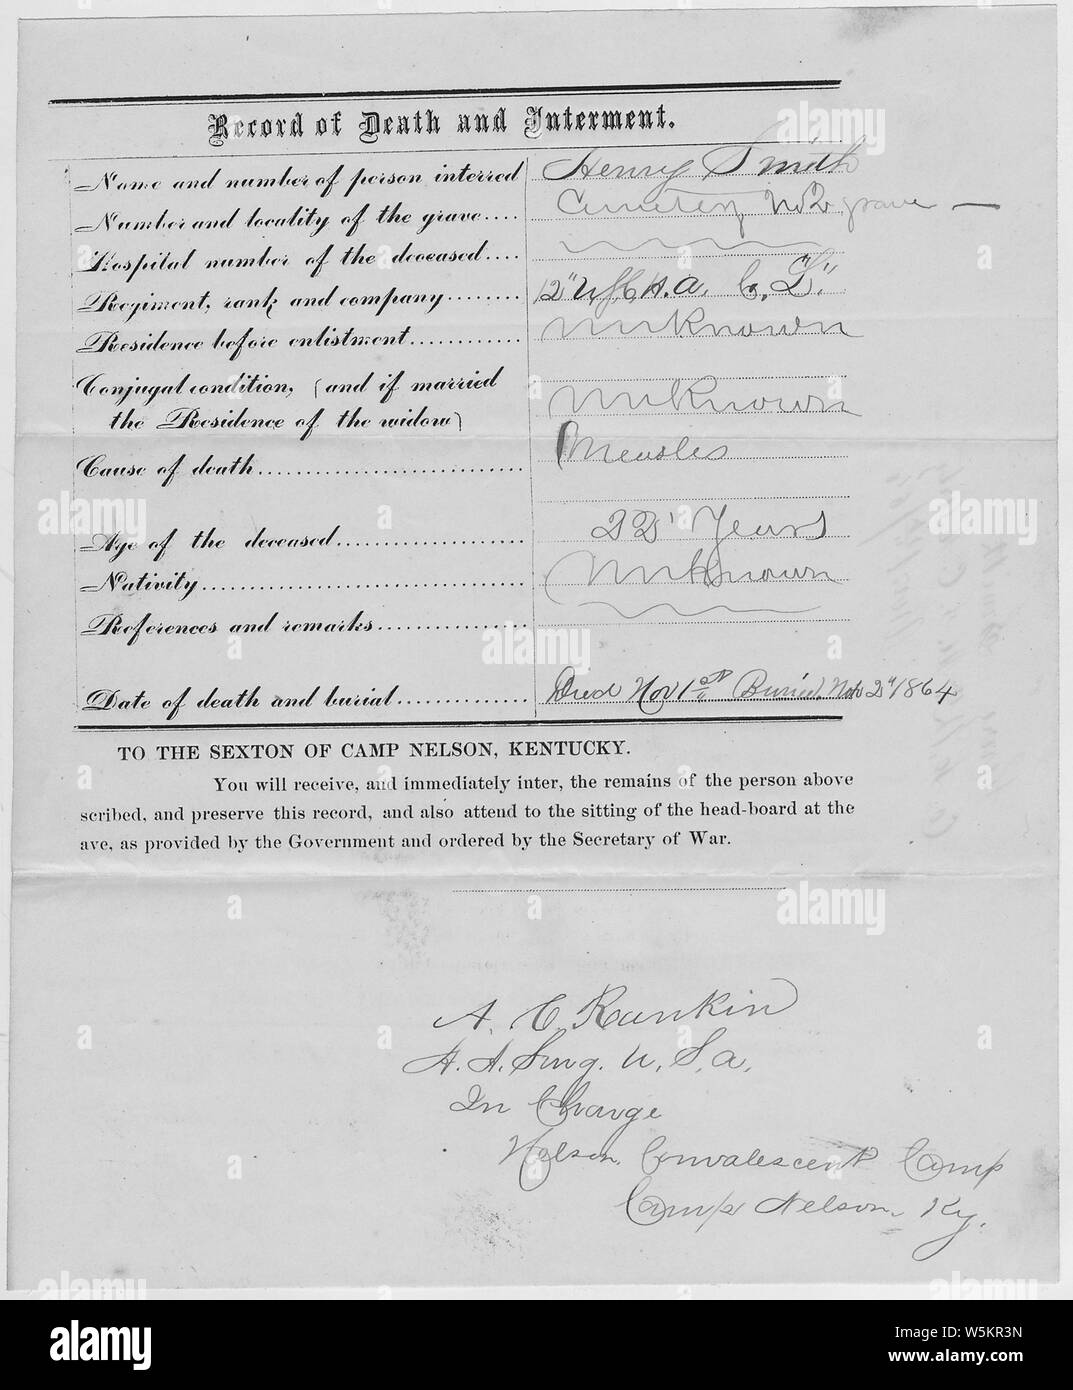 Record of Death and Interment.
Name and number of person interred Henry Smith
Number and locality of the grave.... Cemetery No 2 grave —
Hospital number of the deceased....
Regiment, rank and company........ 12" U.S.C.H.A. Co. "L"
Residence before enlistment............ Unknown
Conjugal condition, (and if married
the Residence of the widow) Unknown
Cause of death............................ Measles
Age of the deceased.................... 22 Years
Nativity.................................. Unknown
References and remarks................
Date of death and burial.............. Died Nov 1st Buried Nov 2" 1864
TO THE SEXTON OF CAMP NELSON, KENTUCKY.
You will receive, and immediately inter, the remains of the person above
scribed, and preserve this record, and also attend to the sitting of the head-board at the
ave, as provided by the Government and ordered by the Secretary of War.
A. C. Rankin
A. A. Surg. U. S. A.
In Charge
Nelson Convalescent Camp
Camp Nelson, Ky.
alamy
Image ID: W5KR3N
www.alamy.com